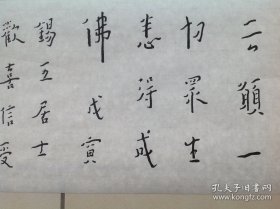 云願一
切眾生
悉得成
佛 戊寅
錫五居士
歡喜信受
孔夫子旧书网